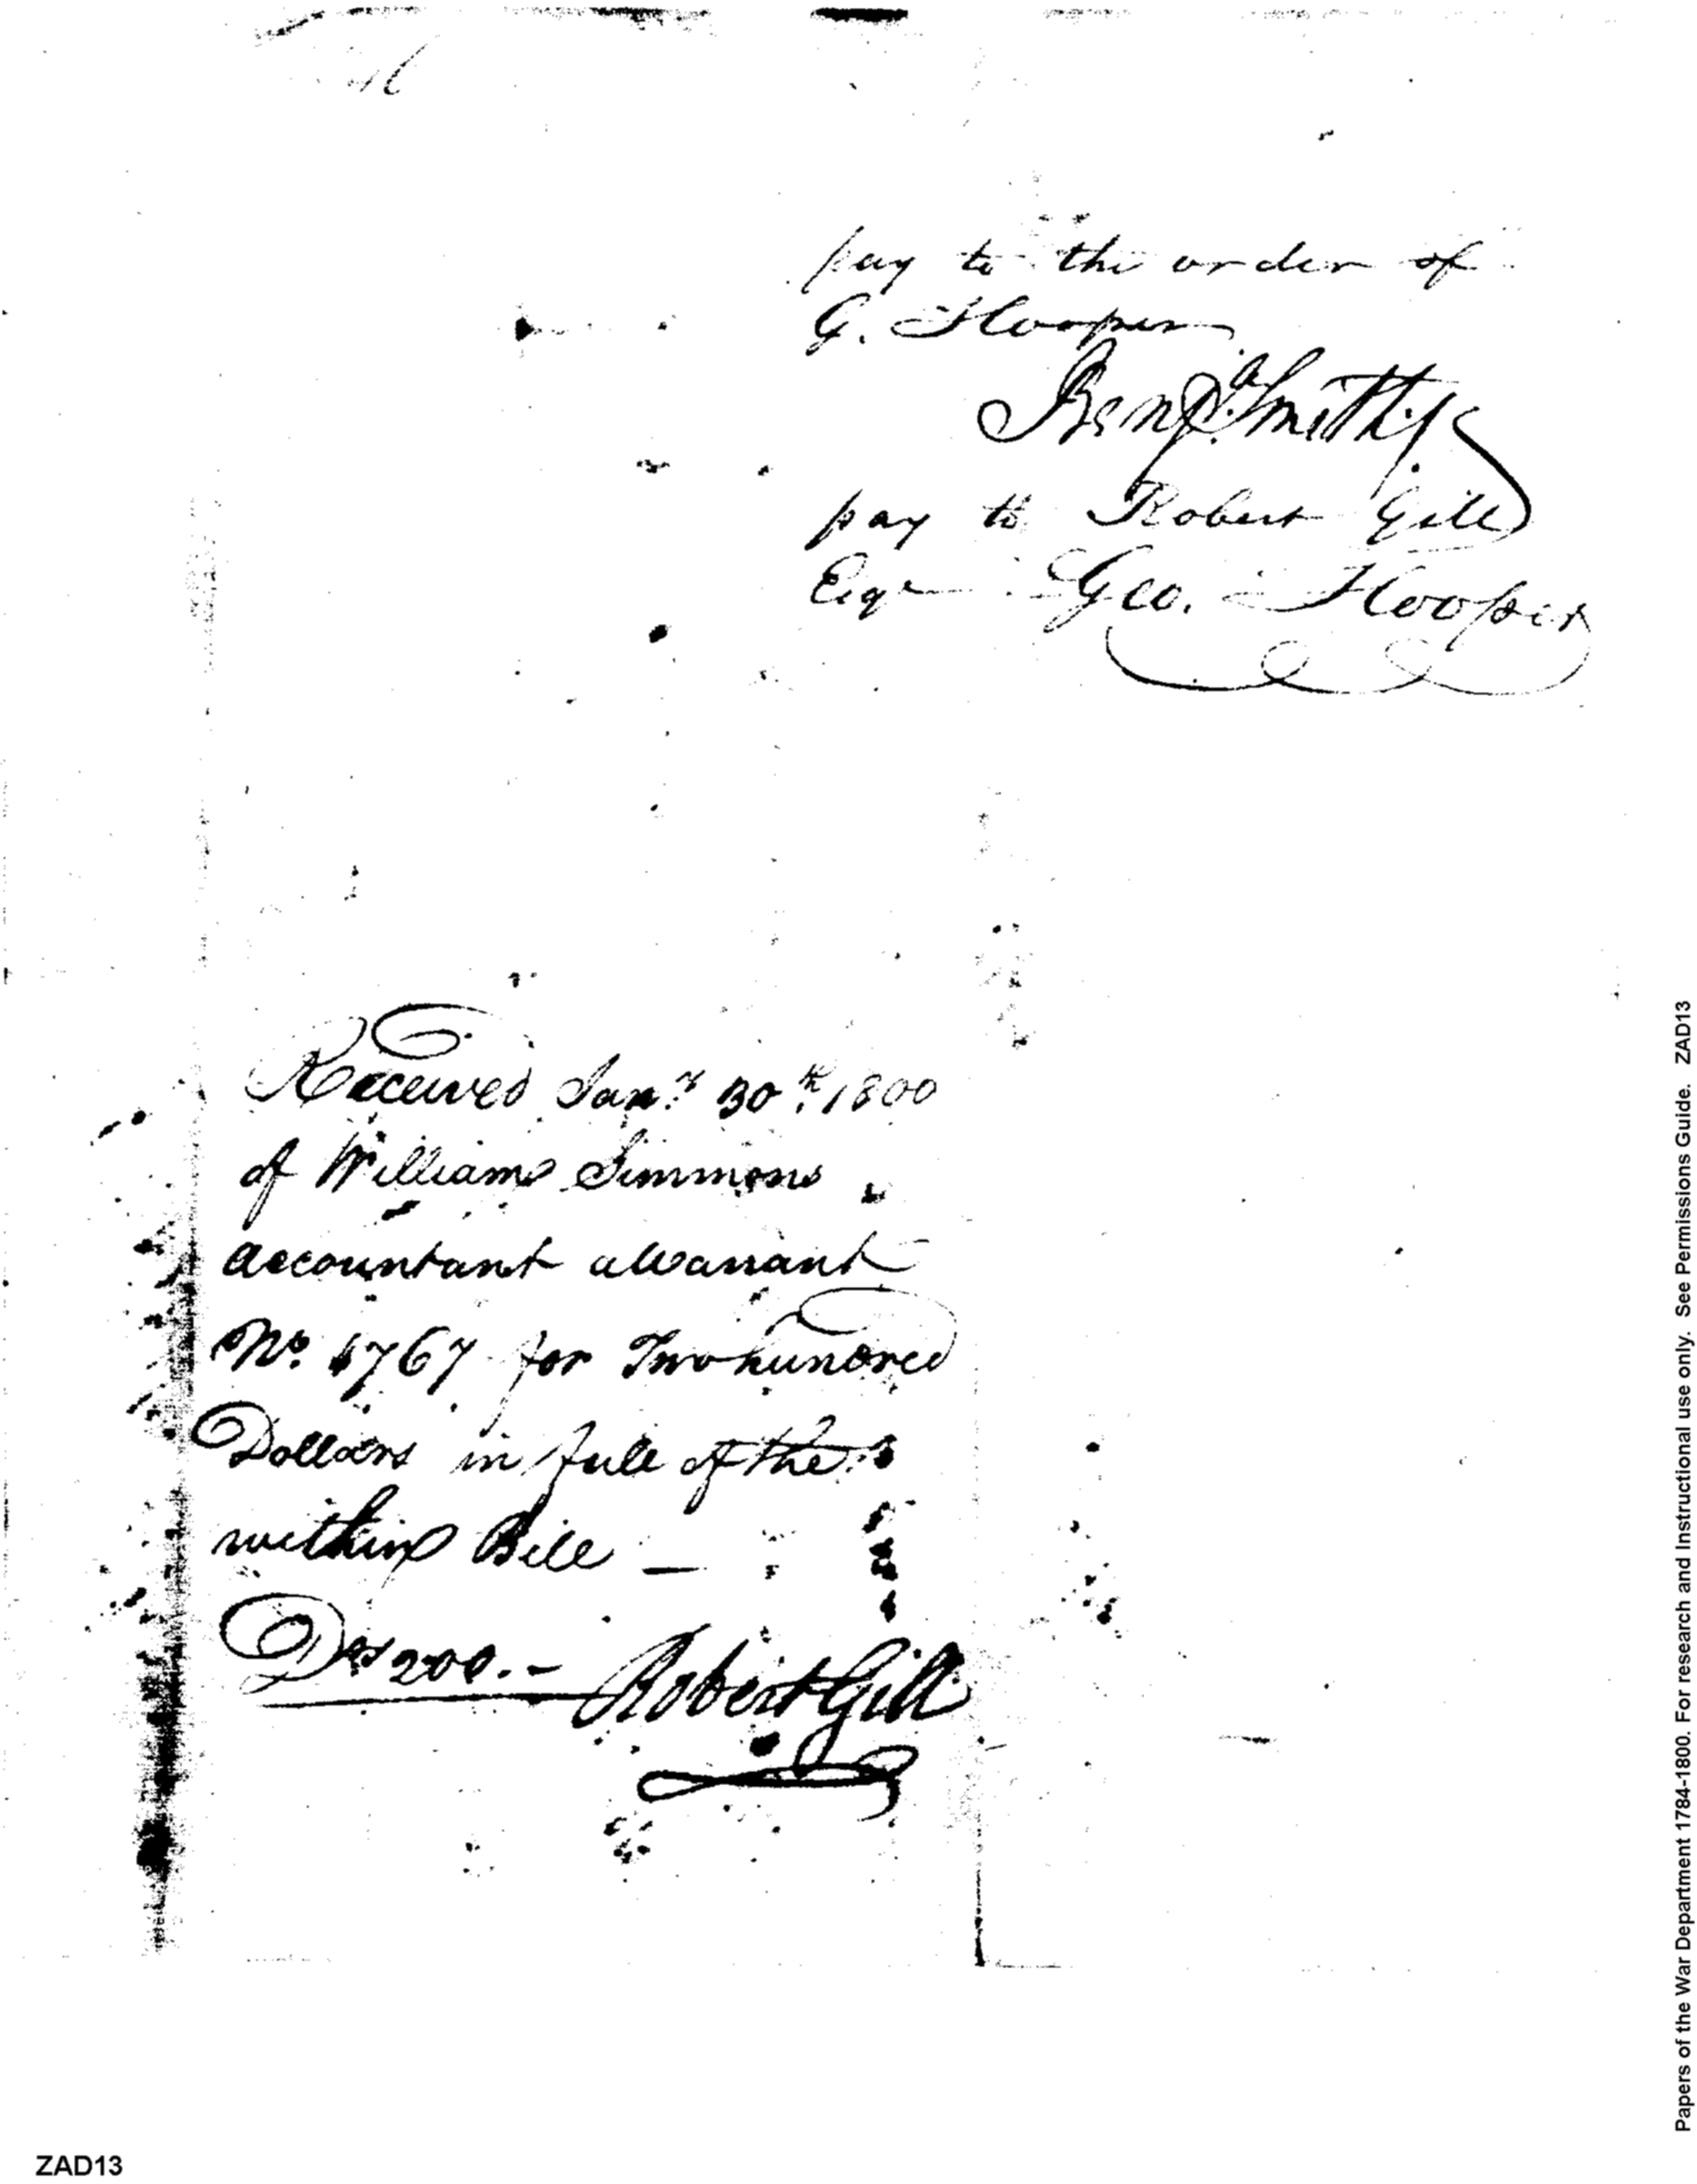 pay to the order of
G. Hooper
Benja. Smith
pay to Robert Gill
Esqr Geo. Hooper
Received Jany 30th 1800
of William Simmons
accountant a Warrant
No. 4767 for Two hundred
Dollars in full of the
within Bill —
Drs 200. –
Robert Gill
Papers of the War Department 1784-1800. For research and Instructional use only. See Permissions Guide. ZAD13
ZAD13